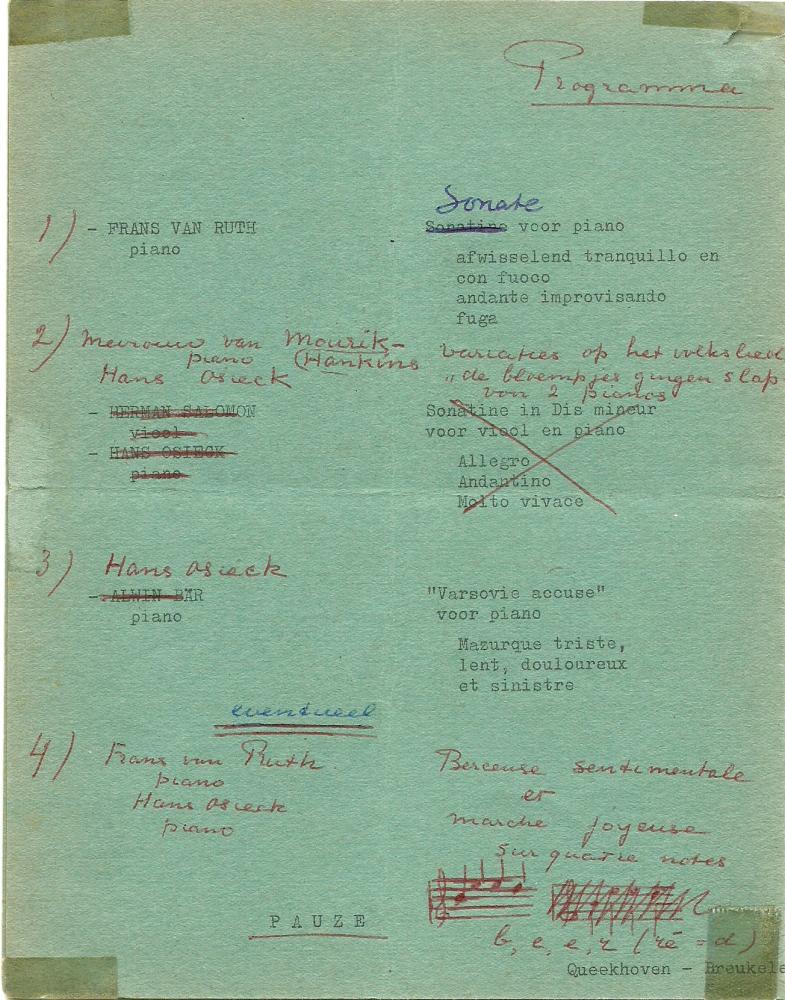 Programma
Sonate
1) - FRANS VAN RUTH Sonatine voor piano
piano
afwisselend tranquillo en
con fuoco
andante improvisando
fuga
2) Mevrouw van Mourik-
piano (Hankins
Hans Osieck
variaties op het volkslied
"de bloempjes gingen slap-
voor 2 pianos
- HERMAN SALOMON
viool
- HANS OSIECK
piano
Sonatine in Dis mineur
voor viool en piano
Allegro
Andantino
Molto vivace
3) Hans Osieck
- ALWIN BÄR
piano
"Varsovie accuse"
voor piano
Mazurque triste,
lent, douloureux
et sinistre
eventueel
4) Frans van Ruth
piano
Hans Osieck
piano
Berceuse sentimentale
et
marche joyeuse
sur quatre notes
b, e, e, r (ré = d)
PAUZE
Queekhoven - Breukele